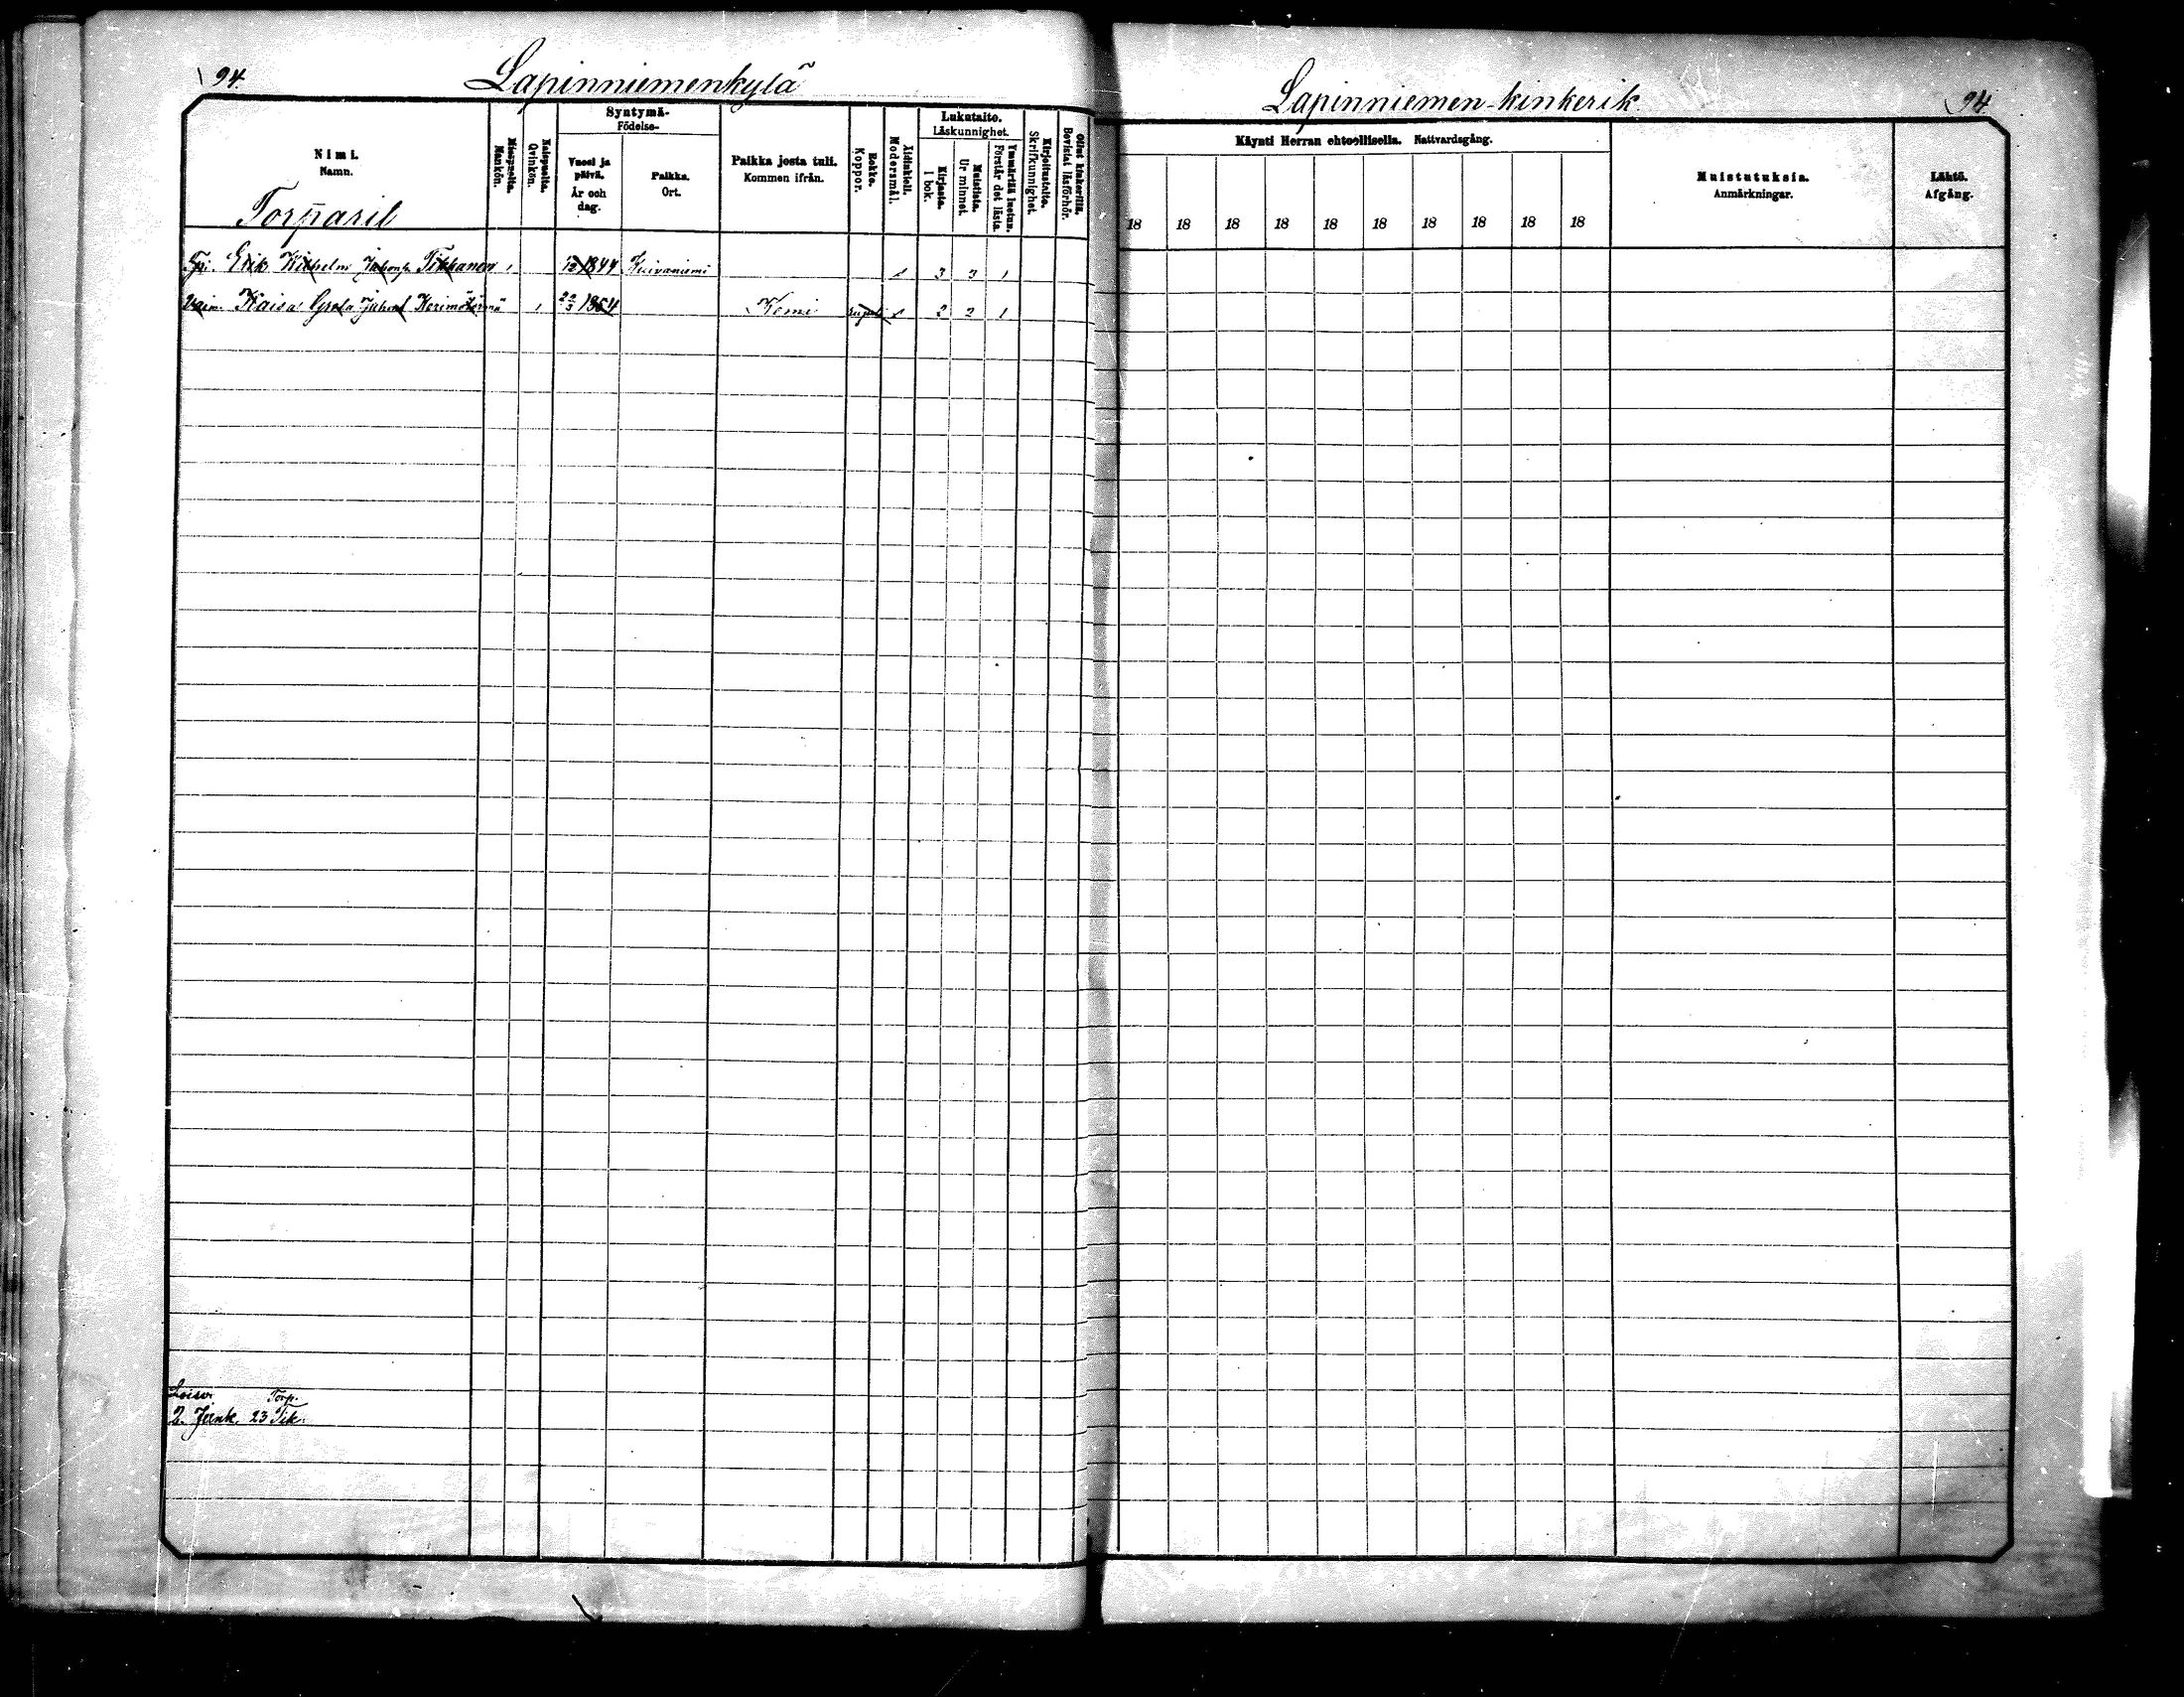 94.
Lapinniemenkylä
Nimi.
Namn.
Torparit
Miespuolia.
Mankön.
Naispuolia.
Qvinkön.
Syntymä-
Födelse-
Vuosi ja
päivä.
År och
dag.
Paikka.
Ort.
Paikka josta tuli.
Kommen ifrån.
Rokko.
Koppor.
Äidinkieli.
Modersmål.
Lukutaito.
Läskunnighet.
Kirjasta.
I bok.
Muistista.
Ur minnet.
Ymmärtää luetun.
Förstår det lästa.
Kirjoitustaito.
Skrifkunnighet.
Ollut kinkerillä.
Bevistat läsförhör.
Erik Wilhelm Tikkanen 1 1844 Kuivaniemi 1 3 3 1
Kaisa Greta 1 1854 Kemi 1 2 2 1
Torp.
2. 23 Tik.
Lapinniemen-kinkerik.
94.
Käynti Herran ehtoollisella. Nattvardsgång.
18 18 18 18 18 18 18 18 18 18
Muistutuksia.
Anmärkningar.
Lähtö.
Afgång.